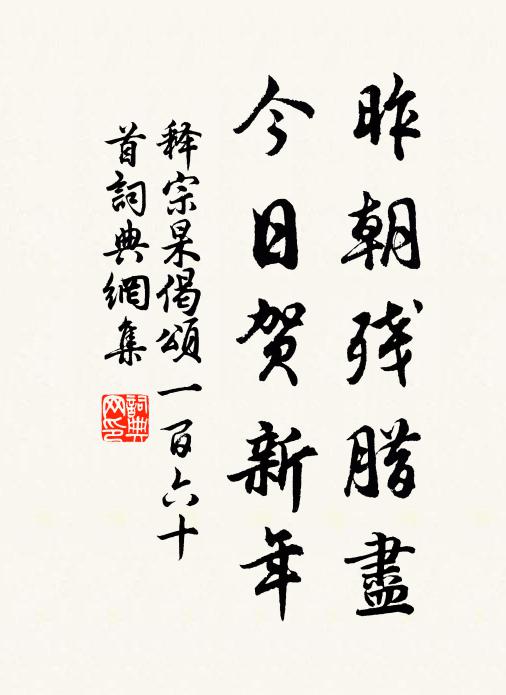 昨朝残腊盡
今日贺新年
释宗杲偈頌一百六十
首詞典網集
詞典网印